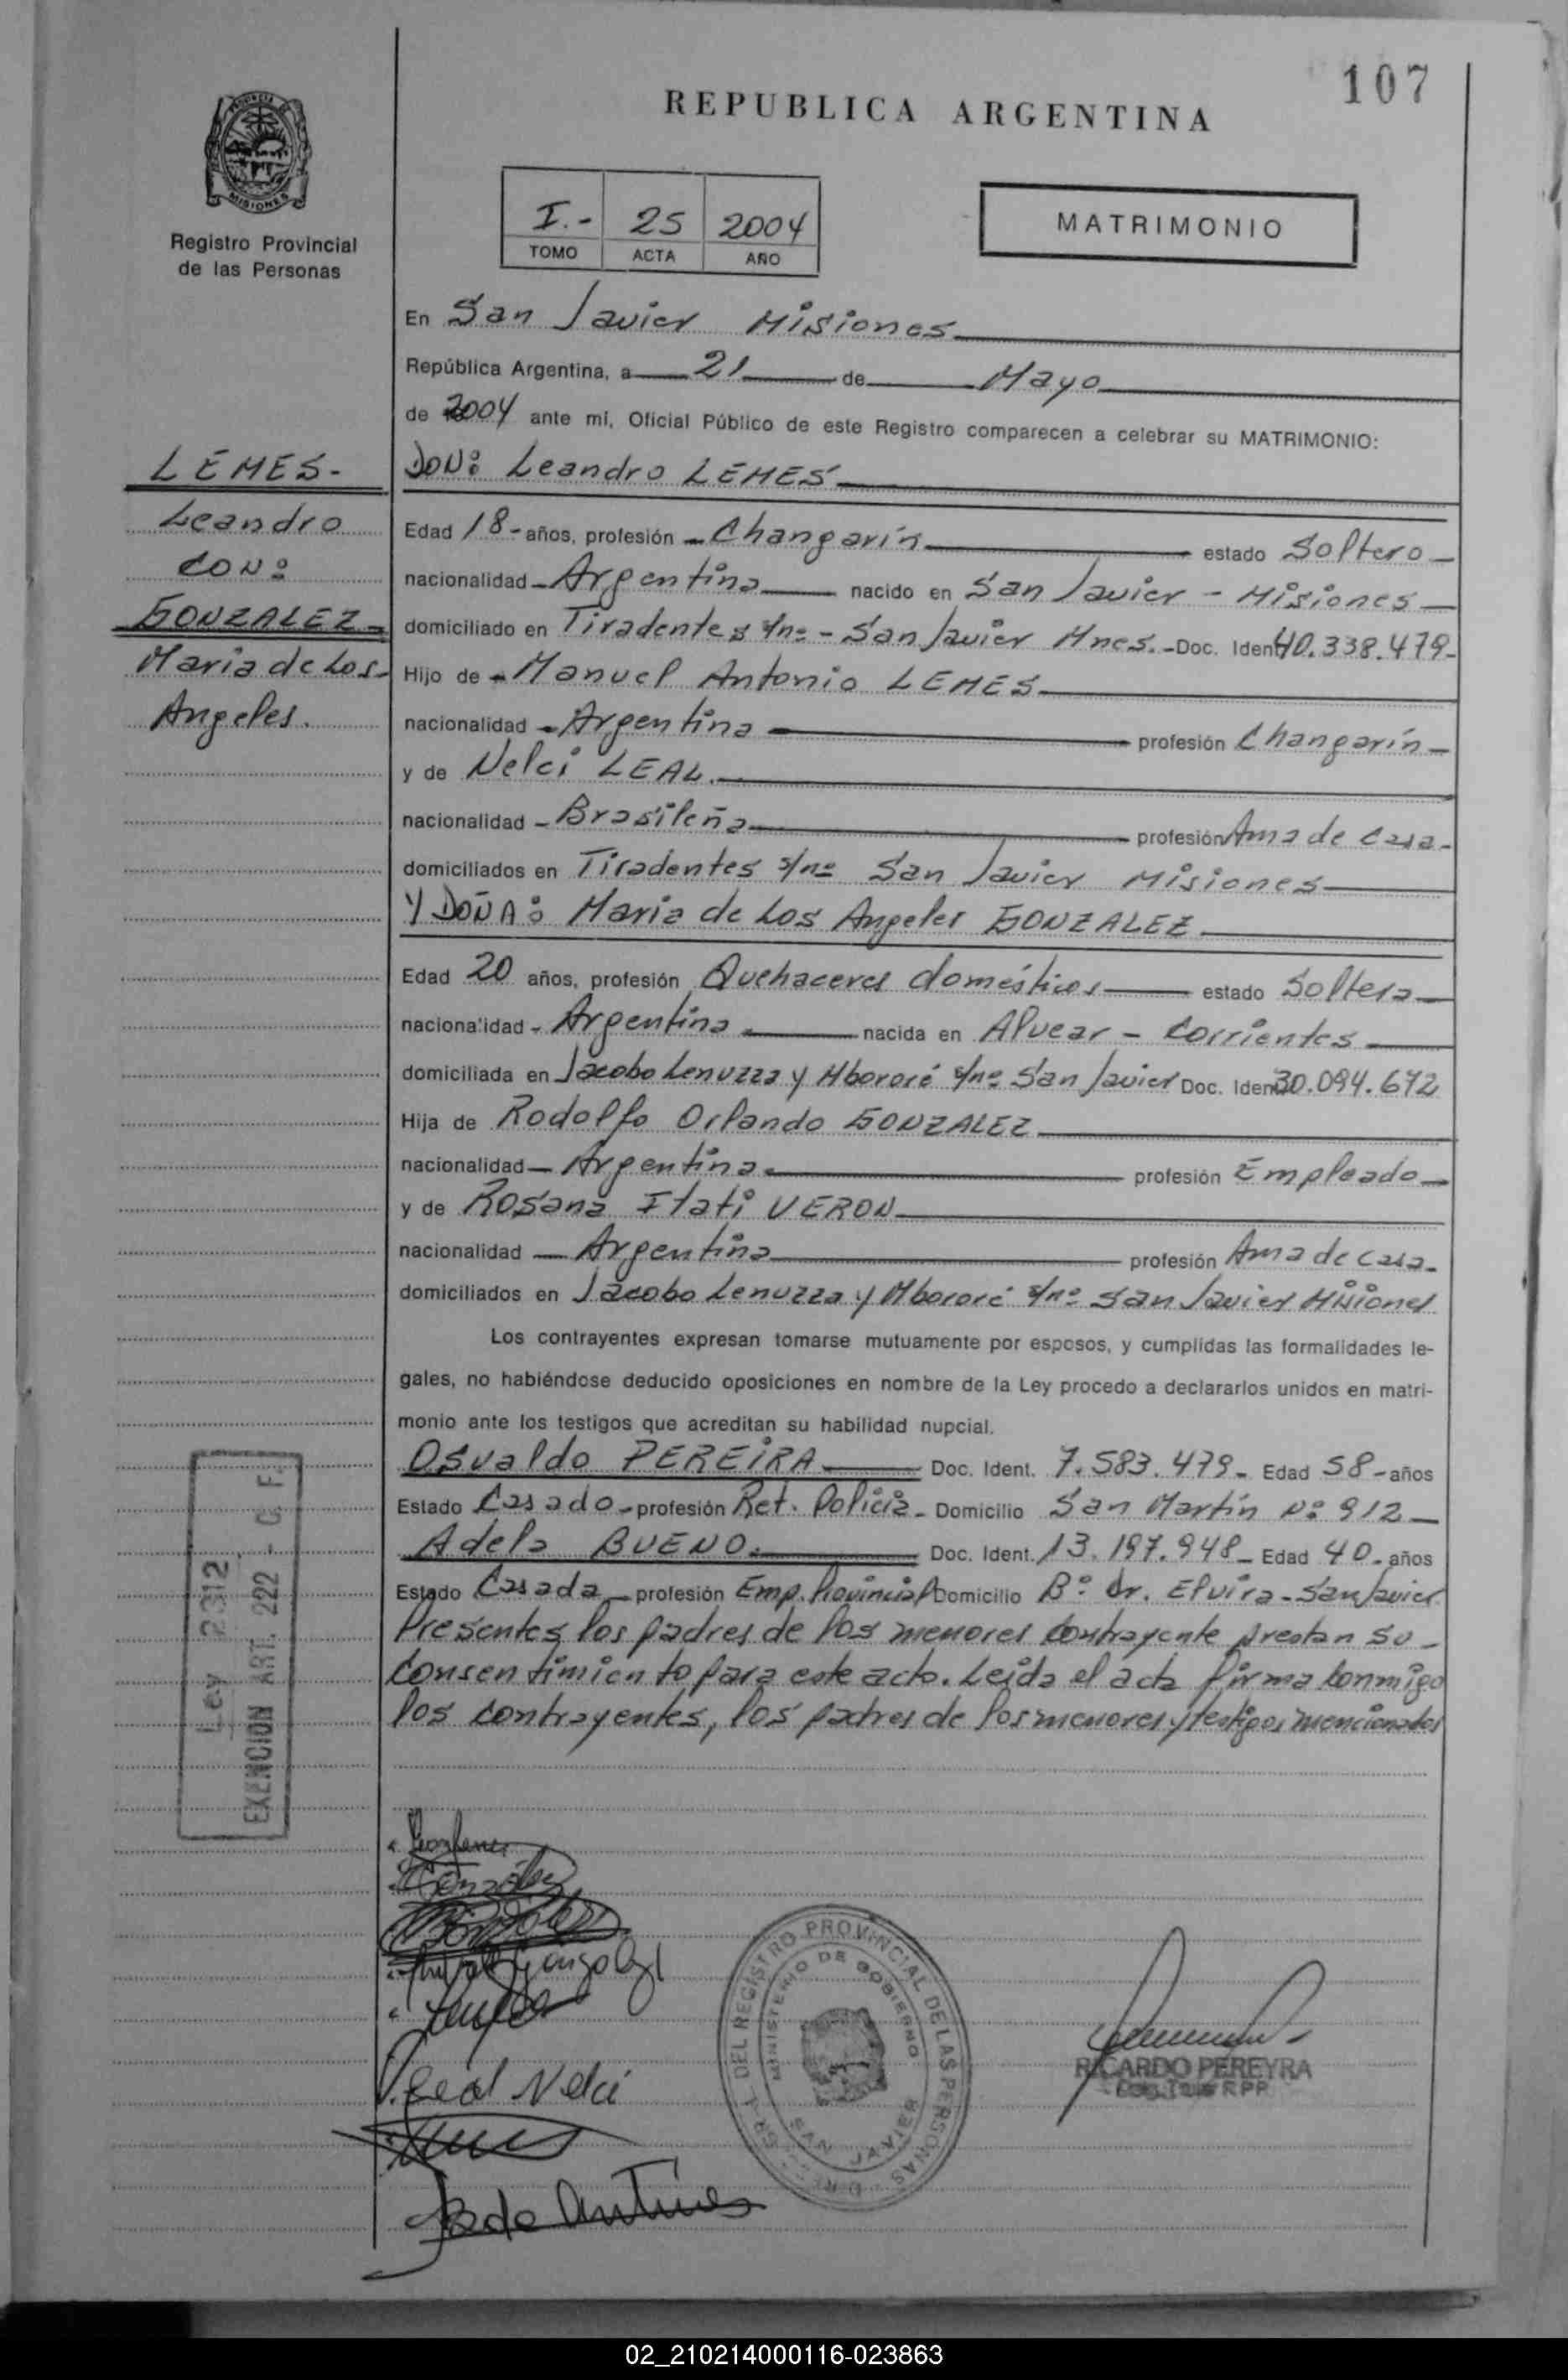 107
REPUBLICA ARGENTINA
PROVINCIA DE
MISIONES
Registro Provincial
de las Personas
I.- 25 2004
TOMO ACTA AÑO
MATRIMONIO
En San Javier Misiones
República Argentina, a 21 de Mayo
de 2004 ante mi, Oficial Público de este Registro comparecen a celebrar su MATRIMONIO:
LEMES-
Leandro
CON:
GONZALEZ-
Maria de Los-
Angeles.
DON: Leandro LEMES
Edad 18- años, profesión - Changarín estado Soltero
nacionalidad - Argentina nacido en San Javier - Misiones
domiciliado en Tiradentes s/nº - San Javier Mnes. - Doc. Ident 40.338.479-
Hijo de - Manuel Antonio LEMES
nacionalidad - Argentina profesión Changarín
y de Nelci LEAL.
nacionalidad - Brasileña profesión Ama de casa-
domiciliados en Tiradentes s/nº San Javier Misiones
Y DOÑA: Maria de Los Angeles GONZALEZ
Edad 20 años, profesión Quehaceres domésticos estado Soltera
nacionalidad - Argentina nacida en Alvear - Corrientes
domiciliada en Jacobo Lenuzza y Mbororé s/nº San Javier Doc. Ident 30.094.672
Hija de Rodolfo Orlando GONZALEZ
nacionalidad - Argentina profesión Empleado
y de Rosana Itati VERON
nacionalidad - Argentina profesión Ama de casa-
domiciliados en Jacobo Lenuzza y Mbororé s/nº San Javier Misiones
Los contrayentes expresan tomarse mutuamente por esposos, y cumplidas las formalidades le-
gales, no habiéndose deducido oposiciones en nombre de la Ley procedo a declararlos unidos en matri-
monio ante los testigos que acreditan su habilidad nupcial.
Osvaldo PEREIRA Doc. Ident. 7.583.479- Edad 58- años
Estado Casado - profesión Ret. Policia - Domicilio San Martín Nº 912
Adela BUENO. Doc. Ident. 13.197.948- Edad 40- años
Estado Casada - profesión Emp. Provincial Domicilio Bº Dr. Elvira - San Javier
Presentes los padres de los menores contrayente prestan su
consentimiento para este acto. Leida el acta firma conmigo
los contrayentes, los padres de los menores y testigos mencionados
Ley 2312
EXENCION ART. 222 - C. F.
González
Leal Nelci
DEL REGISTRO PROVINCIAL DE LAS PERSONAS
MINISTERIO DE GOBIERNO
SAN JAVIER
RICARDO PEREYRA
02_210214000116-023863